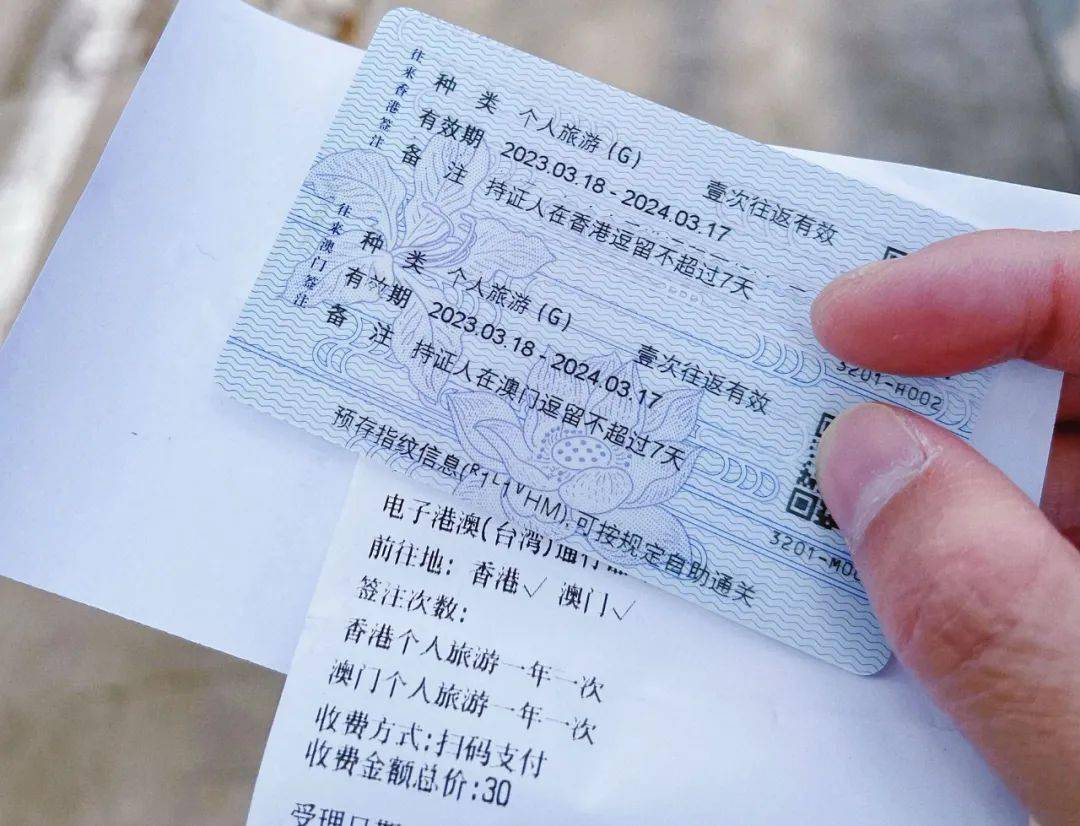 往来香港签注
种 类 个人旅游 (G) 壹次往返有效
有效期 2023.03.18 - 2024.03.17
备 注 持证人在香港逗留不超过7天
3201-H002
往来澳门签注
种 类 个人旅游 (G) 壹次往返有效
有效期 2023.03.18 - 2024.03.17
备 注 持证人在澳门逗留不超过7天
预存指纹信息(R1L1VHM),可按规定自助通关
3201-M00
电子港澳(台湾)通行
前往地: 香港✓ 澳门✓
签注次数:
香港个人旅游一年一次
澳门个人旅游一年一次
收费方式:扫码支付
收费金额总价:30
受理日期